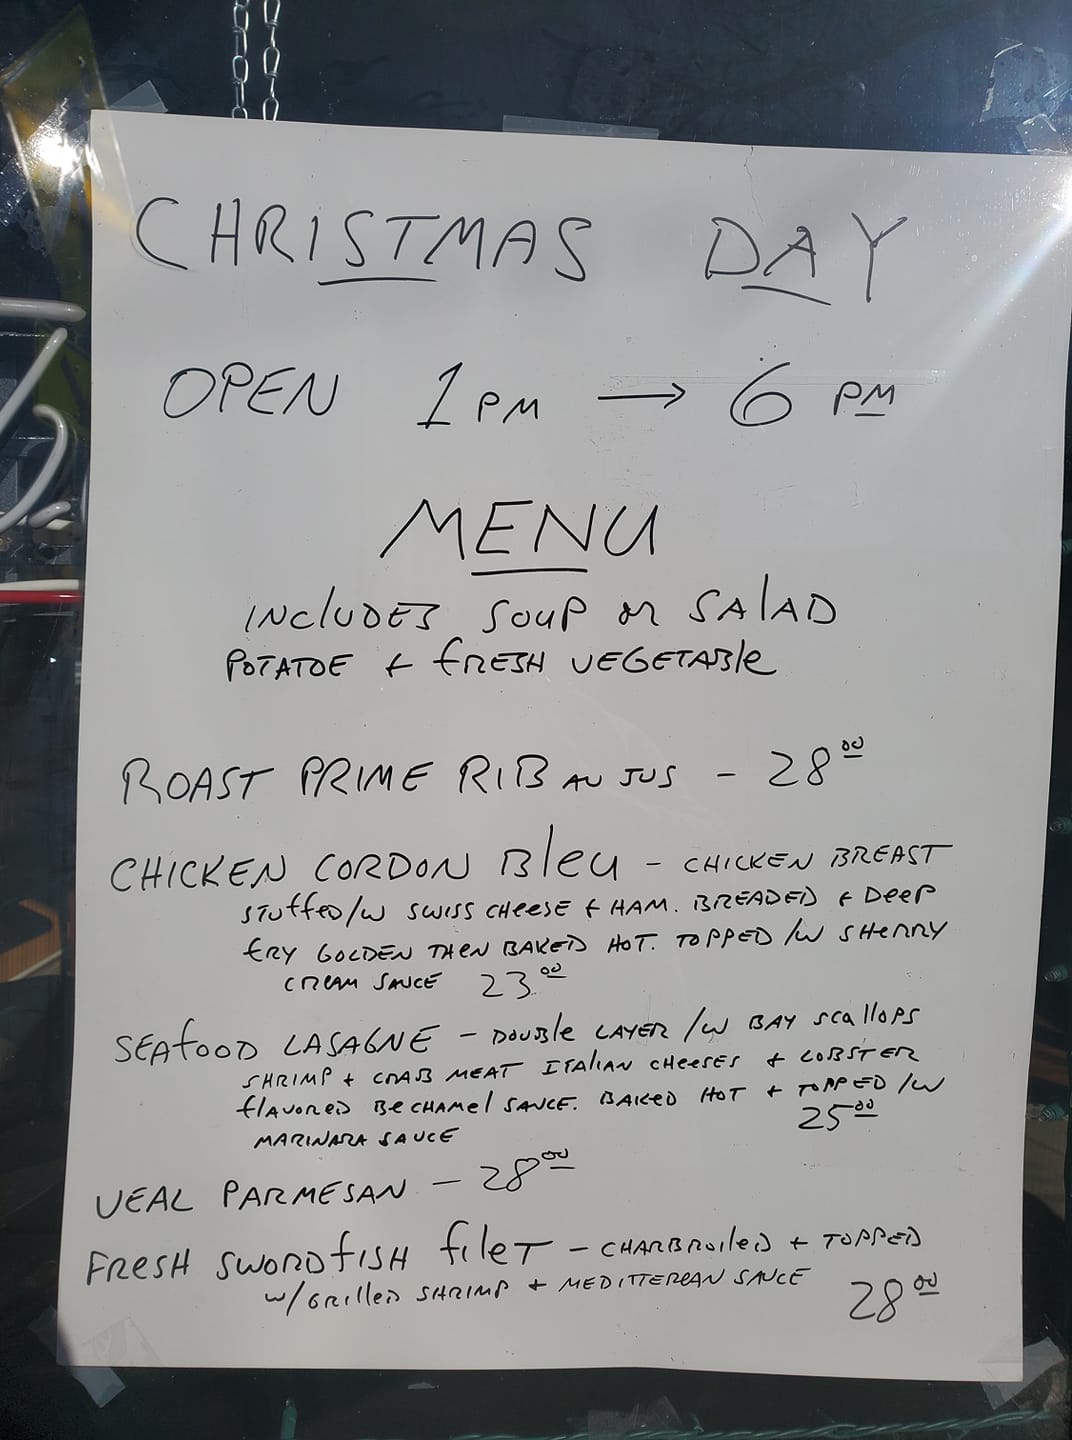 CHRISTMAS DAY
OPEN 1 PM → 6 PM
MENU
INCLUDES SOUP or SALAD
POTATOE + FRESH VEGETABLE
ROAST PRIME RIB AU JUS - 28 00
CHICKEN CORDON Bleu - CHICKEN BREAST
STUFFED /W SWISS CHEESE + HAM. BREADED + DEEP
FRY GOLDEN THEN BAKED HOT. TOPPED /W SHERRY
CREAM SAUCE 23 00
SEAFOOD LASAGNE - DOUBLE LAYER /W BAY SCALLOPS
SHRIMP + CRAB MEAT ITALIAN CHEESES + LOBSTER
FLAVORED BECHAMEL SAUCE. BAKED HOT + TOPPED /W
MARINARA SAUCE 25 00
VEAL PARMESAN - 28 00
FRESH SWORDFISH FILET - CHARBROILED + TOPPED
W/ GRILLED SHRIMP + MEDITTEREAN SAUCE 28 00